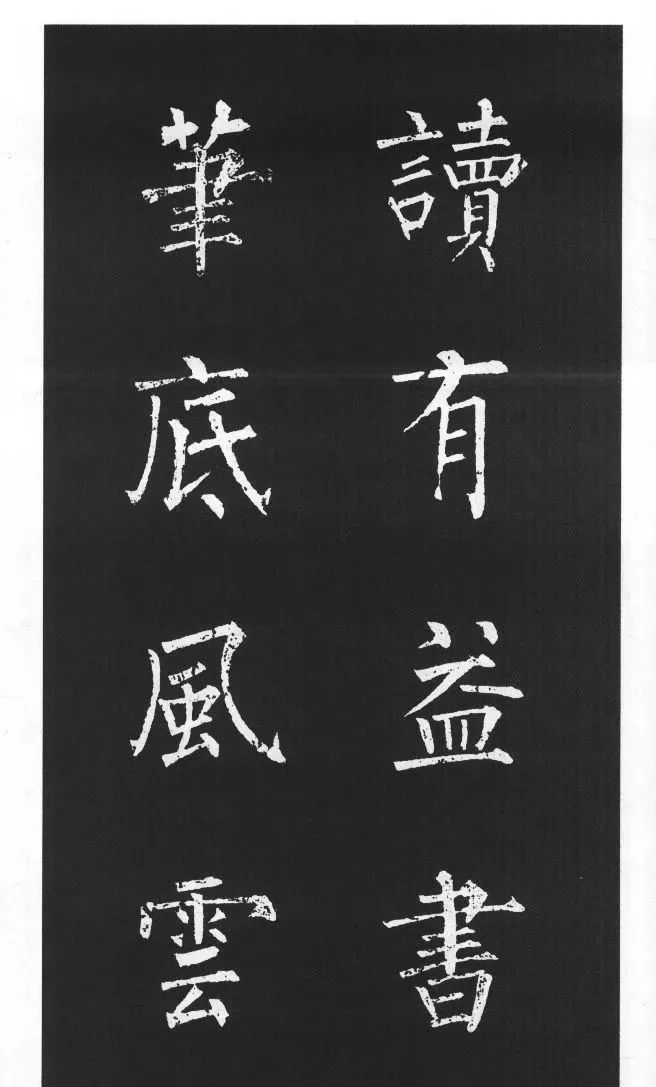 讀有益書
筆底風雲